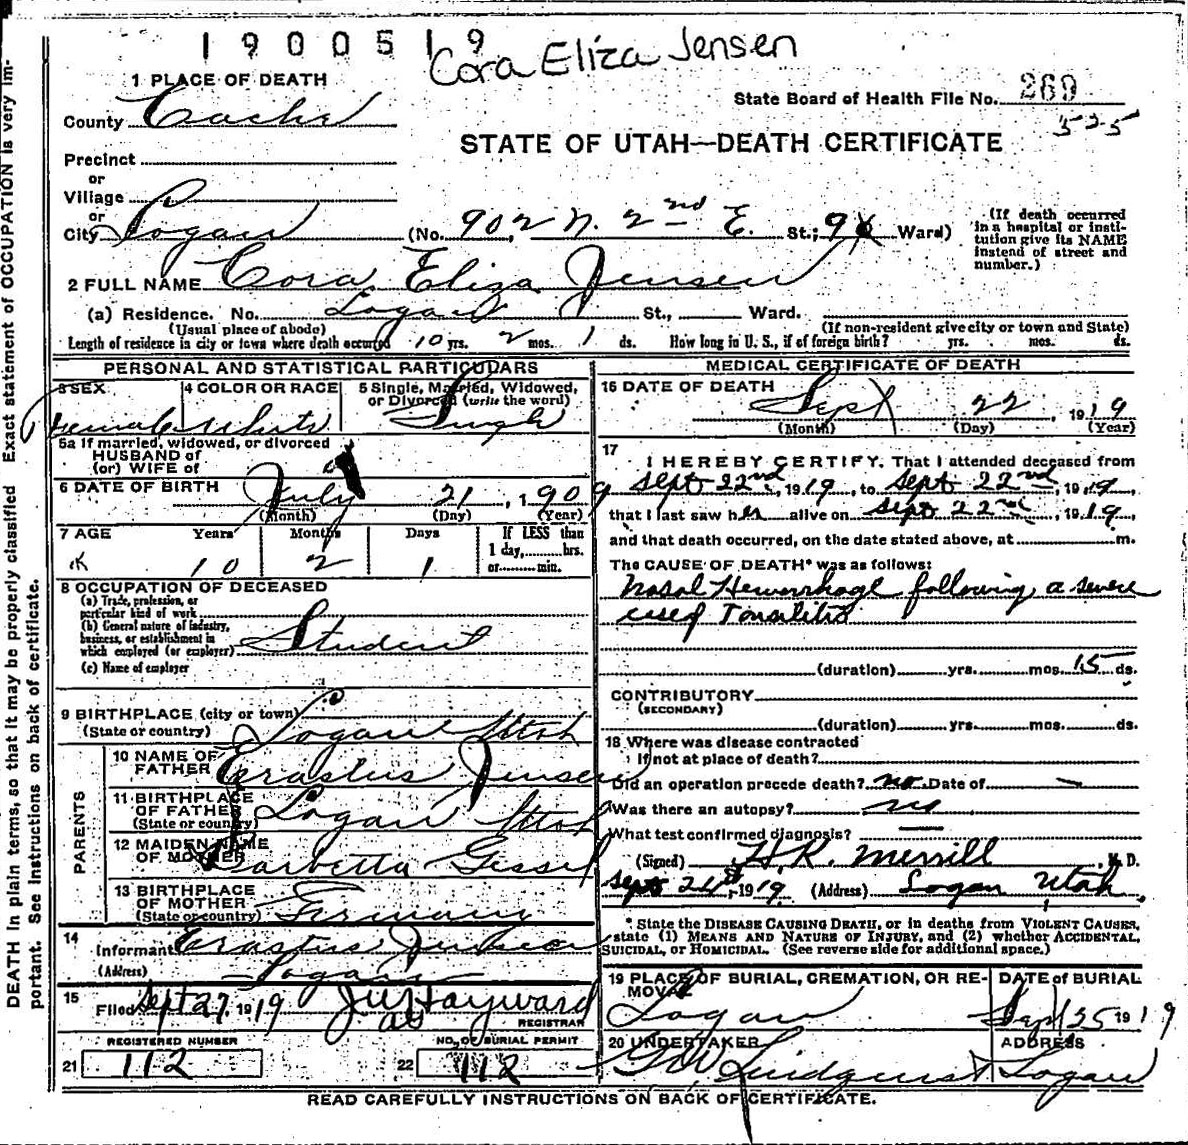 1900519
Cora Eliza Jensen
1 PLACE OF DEATH
County Cache
State Board of Health File No. 269
525
STATE OF UTAH—DEATH CERTIFICATE
Precinct
or
Village
or
City Logan (No. 902 N. 2nd E. St.; 9 Ward)
(If death occurred in a hospital or institution give its NAME instead of street and number.)
2 FULL NAME Cora Eliza Jensen
(a) Residence. No. Logan St., Ward.
(Usual place of abode) (If non-resident give city or town and State)
Length of residence in city or town where death occured 10 yrs. 2 mos. 1 ds. How long in U. S., if of foreign birth? yrs. mos. ds.
PERSONAL AND STATISTICAL PARTICULARS
3 SEX 4 COLOR OR RACE 5 Single, Married, Widowed, or Divorced (write the word)
Female White Single
5a If married, widowed, or divorced
HUSBAND of
(or) WIFE of
6 DATE OF BIRTH July 21, 1909
(Month) (Day) (Year)
7 AGE Years Months Days If LESS than 1 day, hrs. or min.
10 2 1
8 OCCUPATION OF DECEASED
(a) Trade, profession, or particular kind of work
(b) General nature of industry, business, or establishment in which employed (or employer) Student
(c) Name of employer
9 BIRTHPLACE (city or town)
(State or country) Logan Utah
PARENTS
10 NAME OF FATHER Erastus Jensen
11 BIRTHPLACE OF FATHER (State or country) Logan Utah
12 MAIDEN NAME OF MOTHER Barbetta Gessel
13 BIRTHPLACE OF MOTHER (State or country) Germany
14 Informant Erastus Jensen
(Address) Logan
15 Filed Sept 27, 1919 Hayward
REGISTRAR
REGISTERED NUMBER NO. OF BURIAL PERMIT
21 112 22 112
MEDICAL CERTIFICATE OF DEATH
16 DATE OF DEATH Sept 22, 1919
(Month) (Day) (Year)
17 I HEREBY CERTIFY, That I attended deceased from
Sept 22nd, 1919, to Sept 22nd, 1919,
that I last saw her alive on Sept 22nd, 1919,
and that death occurred, on the date stated above, at m.
The CAUSE OF DEATH* was as follows:
Nasal Hemorrhage following a severe
case of Tonsilitis
(duration) yrs. mos. 15 ds.
CONTRIBUTORY
(SECONDARY)
(duration) yrs. mos. ds.
18 Where was disease contracted
if not at place of death?
Did an operation precede death? no Date of —
Was there an autopsy? no
What test confirmed diagnosis? —
(Signed) H.R. Merrill, M. D.
Sept 24, 1919 (Address) Logan Utah.
* State the DISEASE CAUSING DEATH, or in deaths from VIOLENT CAUSES,
state (1) MEANS AND NATURE OF INJURY, and (2) whether ACCIDENTAL,
SUICIDAL, or HOMICIDAL. (See reverse side for additional space.)
19 PLACE OF BURIAL, CREMATION, OR REMOVAL DATE of BURIAL
Logan Sept 25 1919
20 UNDERTAKER ADDRESS
Lindquist Logan
READ CAREFULLY INSTRUCTIONS ON BACK OF CERTIFICATE.
DEATH in plain terms, so that it may be properly classified Exact statement of OCCUPATION is very im-
portant. See instructions on back of certificate.